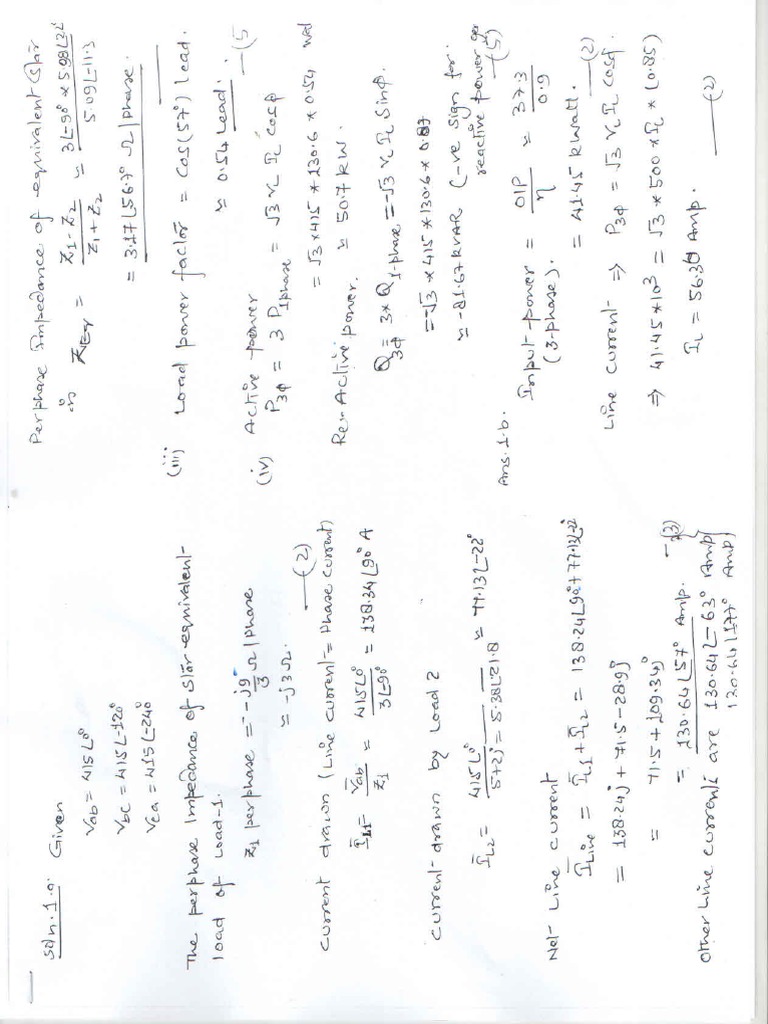 Soln.1.a. Given
Vab = 415∠0°
Vbc = 415∠-120°
Vca = 415∠-240°
The perphase impedance of star equivalent-
load of Load-1.
Z1 perphase = -j9/3 Ω/phase
= -j3Ω.
Current drawn (Line current = Phase current) —(2)
ĪL1 = V̄ab/Z1 = 415∠0°/3∠-90° = 138.34∠90° A
Current-drawn by Load 2
ĪL2 = 415∠0°/5+2j = 5.38∠21.8 = 77.13∠-22°
Net- Line current
ĪLine = ĪL1 + ĪL2 = 138.24∠90° + 77.13∠-22
= 138.24j + 71.5 - 28.9j
= 71.5 + 109.34j
= 130.64∠57° Amp. —(3)
Other Line currents are 130.64∠-63° Amp
130.64∠177° Amp
Perphase Impedance of equivalent Star
is ZEq = Z1-Z2/Z1+Z2 = 3∠-90° × 5.98∠22/5.09∠-11.3
= 3.17∠56.7° Ω/phase.
(iii) Load power factor = Cos(57°) lead.
= 0.54 Lead. —(5
(iv) Active power
P3φ = 3 P1phase = √3 VL IL cosφ
= √3 × 415 * 130.6 * 0.54
= 50.7 kW.
Re-Active power.
Q3φ = 3 * Q1-phase = -√3 VL IL Sinφ.
= -√3 * 415 * 130.6 * 0.87
= -81.67 kVAR (-ve sign for
reactive power —(5)
Ans.1.b.
Input-power = O/P/η = 37.3/0.9
(3-phase).
= 41.45 kWatt. —(2)
Line current- ⇒ P3φ = √3 VL IL cosφ.
⇒ 41.45*10³ = √3 * 500 * IL * (0.85)
IL = 56.30 Amp. —(2)